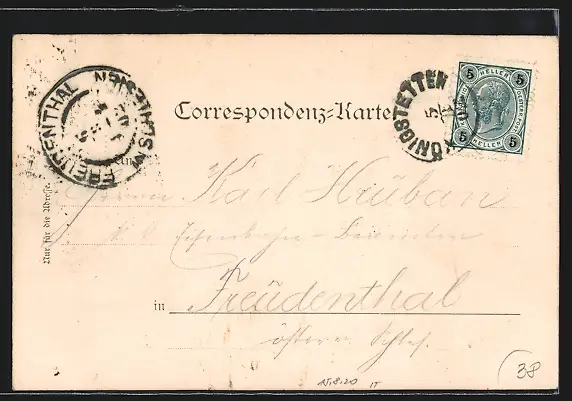 Correspondenz-Karte
KÖNIGSTETTEN
5 HELLER 5
5 5
FREUDENTHAL IN SCHLESIEN
Nur für die Adresse.
An
Herrn Karl Hruban
k. k. Eisenbahn-
in Freudenthal
österr. Schles.
38